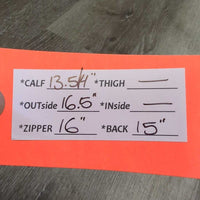 *CALF 13.5/14" *THIGH —
*OUTside 16.5" *INside —
*ZIPPER 16" *BACK 15"